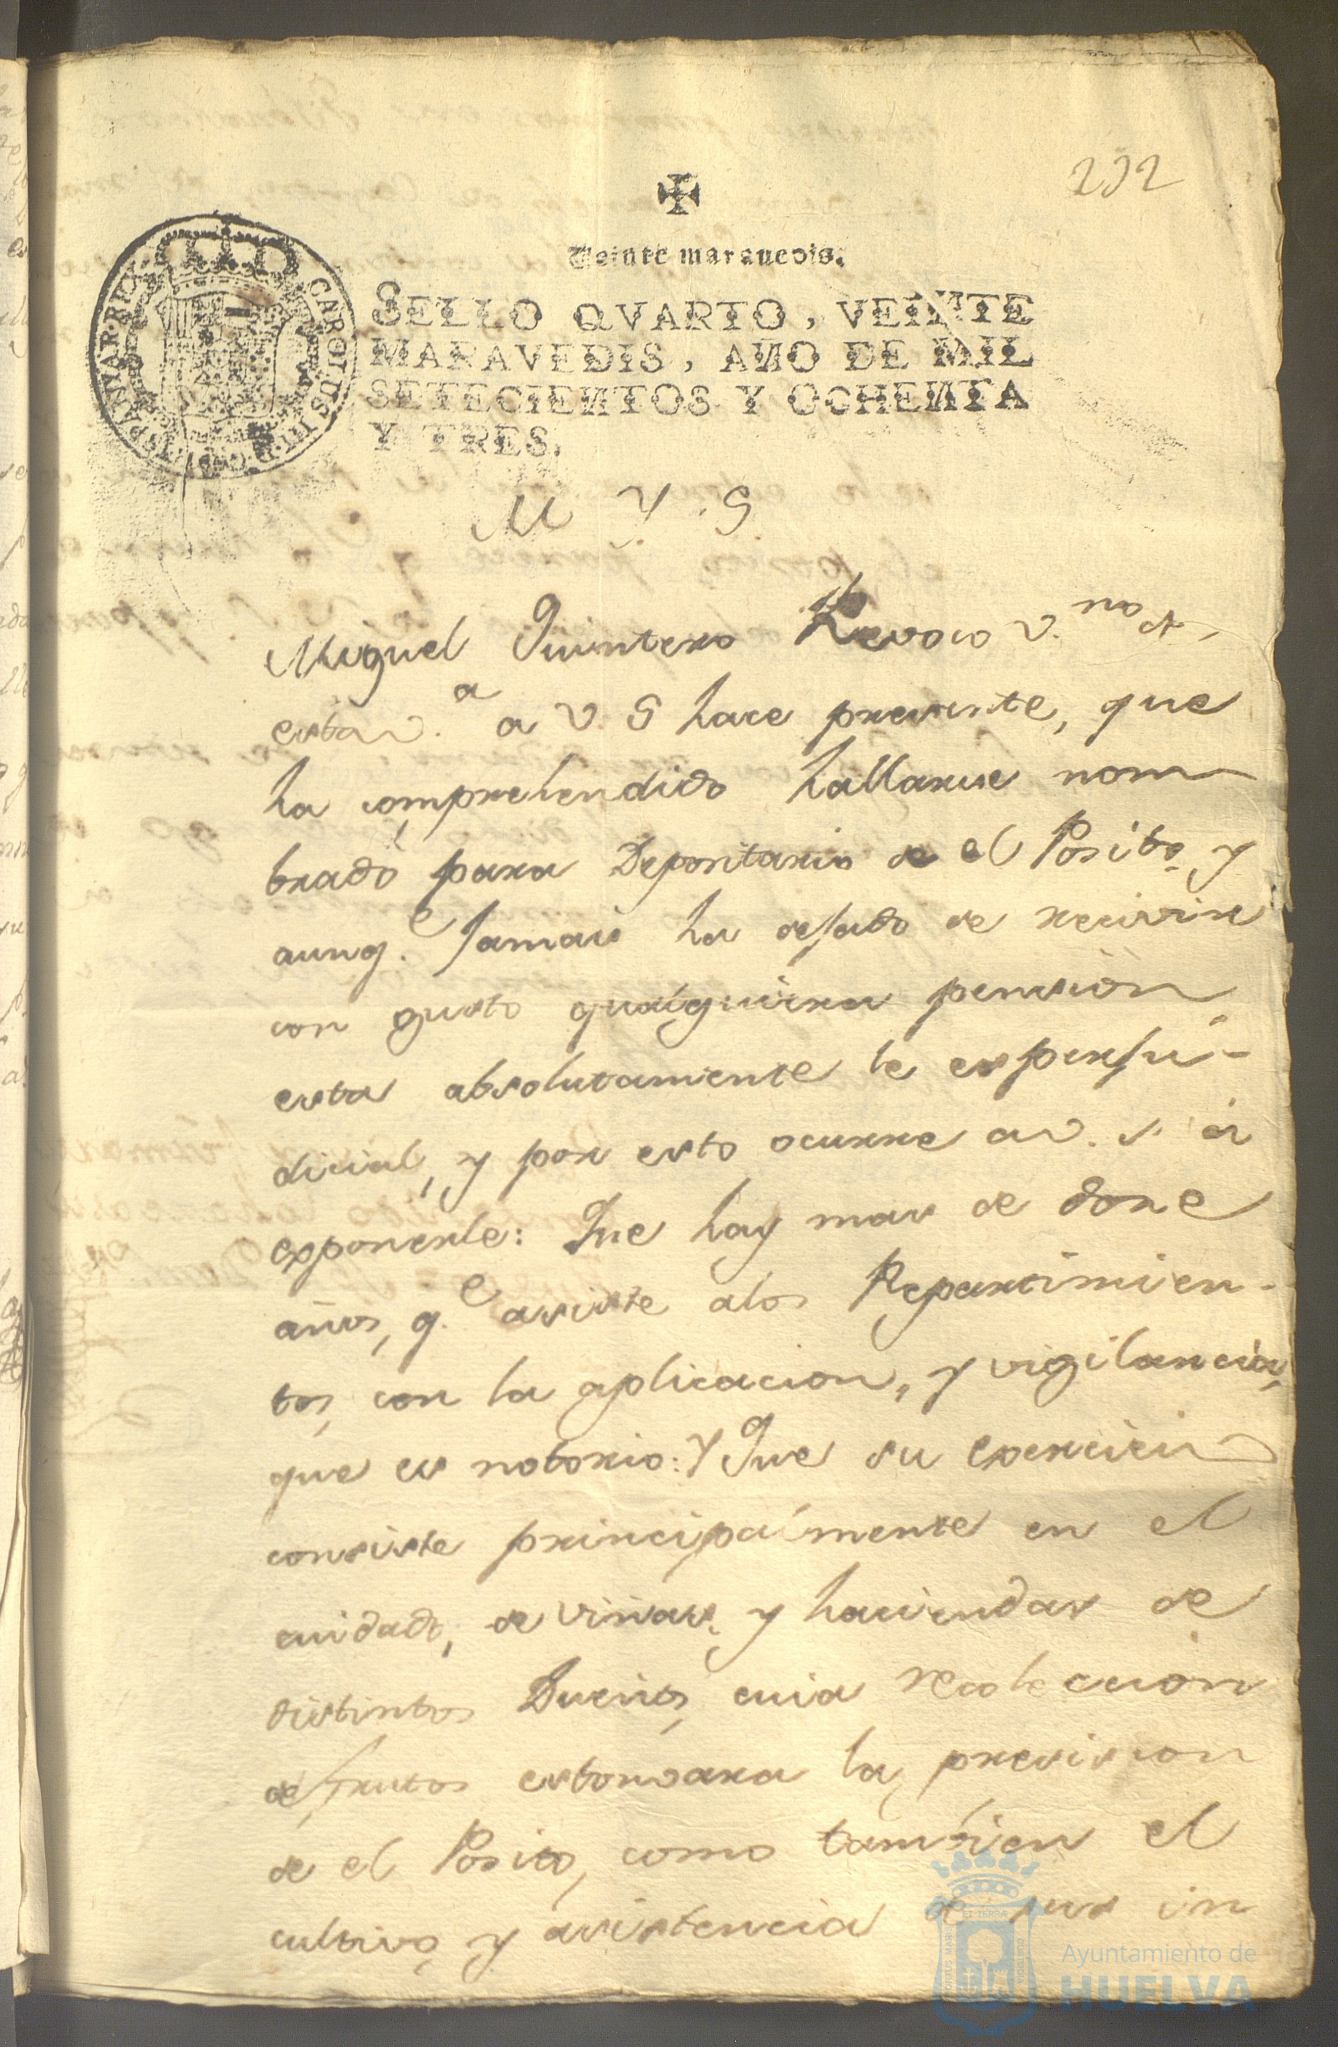 232
Veinte maravedis.
SELLO QVARTO, VEINTE
MARAVEDIS, AÑO DE MIL
SETECIENTOS Y OCHENTA
Y TRES.
CAROLUS III D G HISPANIAR REX
M Y S
Miguel Quintero v.no de
esta v.a a V. S hace presente, que
ha comprehendido hallarse nom
brado para Depositario de el Posito, y
aunq.e Jamas ha dejado de recivir
con gusto qualquiera pension
esta absolutamente le es perju-
dicial, y por esto ocurre a V. S. á
exponerle: Que hay mas de doze
años, q.e asiste a los Repartimien-
tos, con la aplicacion, y vigilancia,
que es notorio: Y Que su exercicio
consiste principalmente en el
cuidado, de viñas, y haciendas de
distintos Dueños, cuia recoleccion
de frutos estorvara la precision
de el Posito, como tambien el
cultivo, y asistencia de sus in
Ayuntamiento de
HUELVA